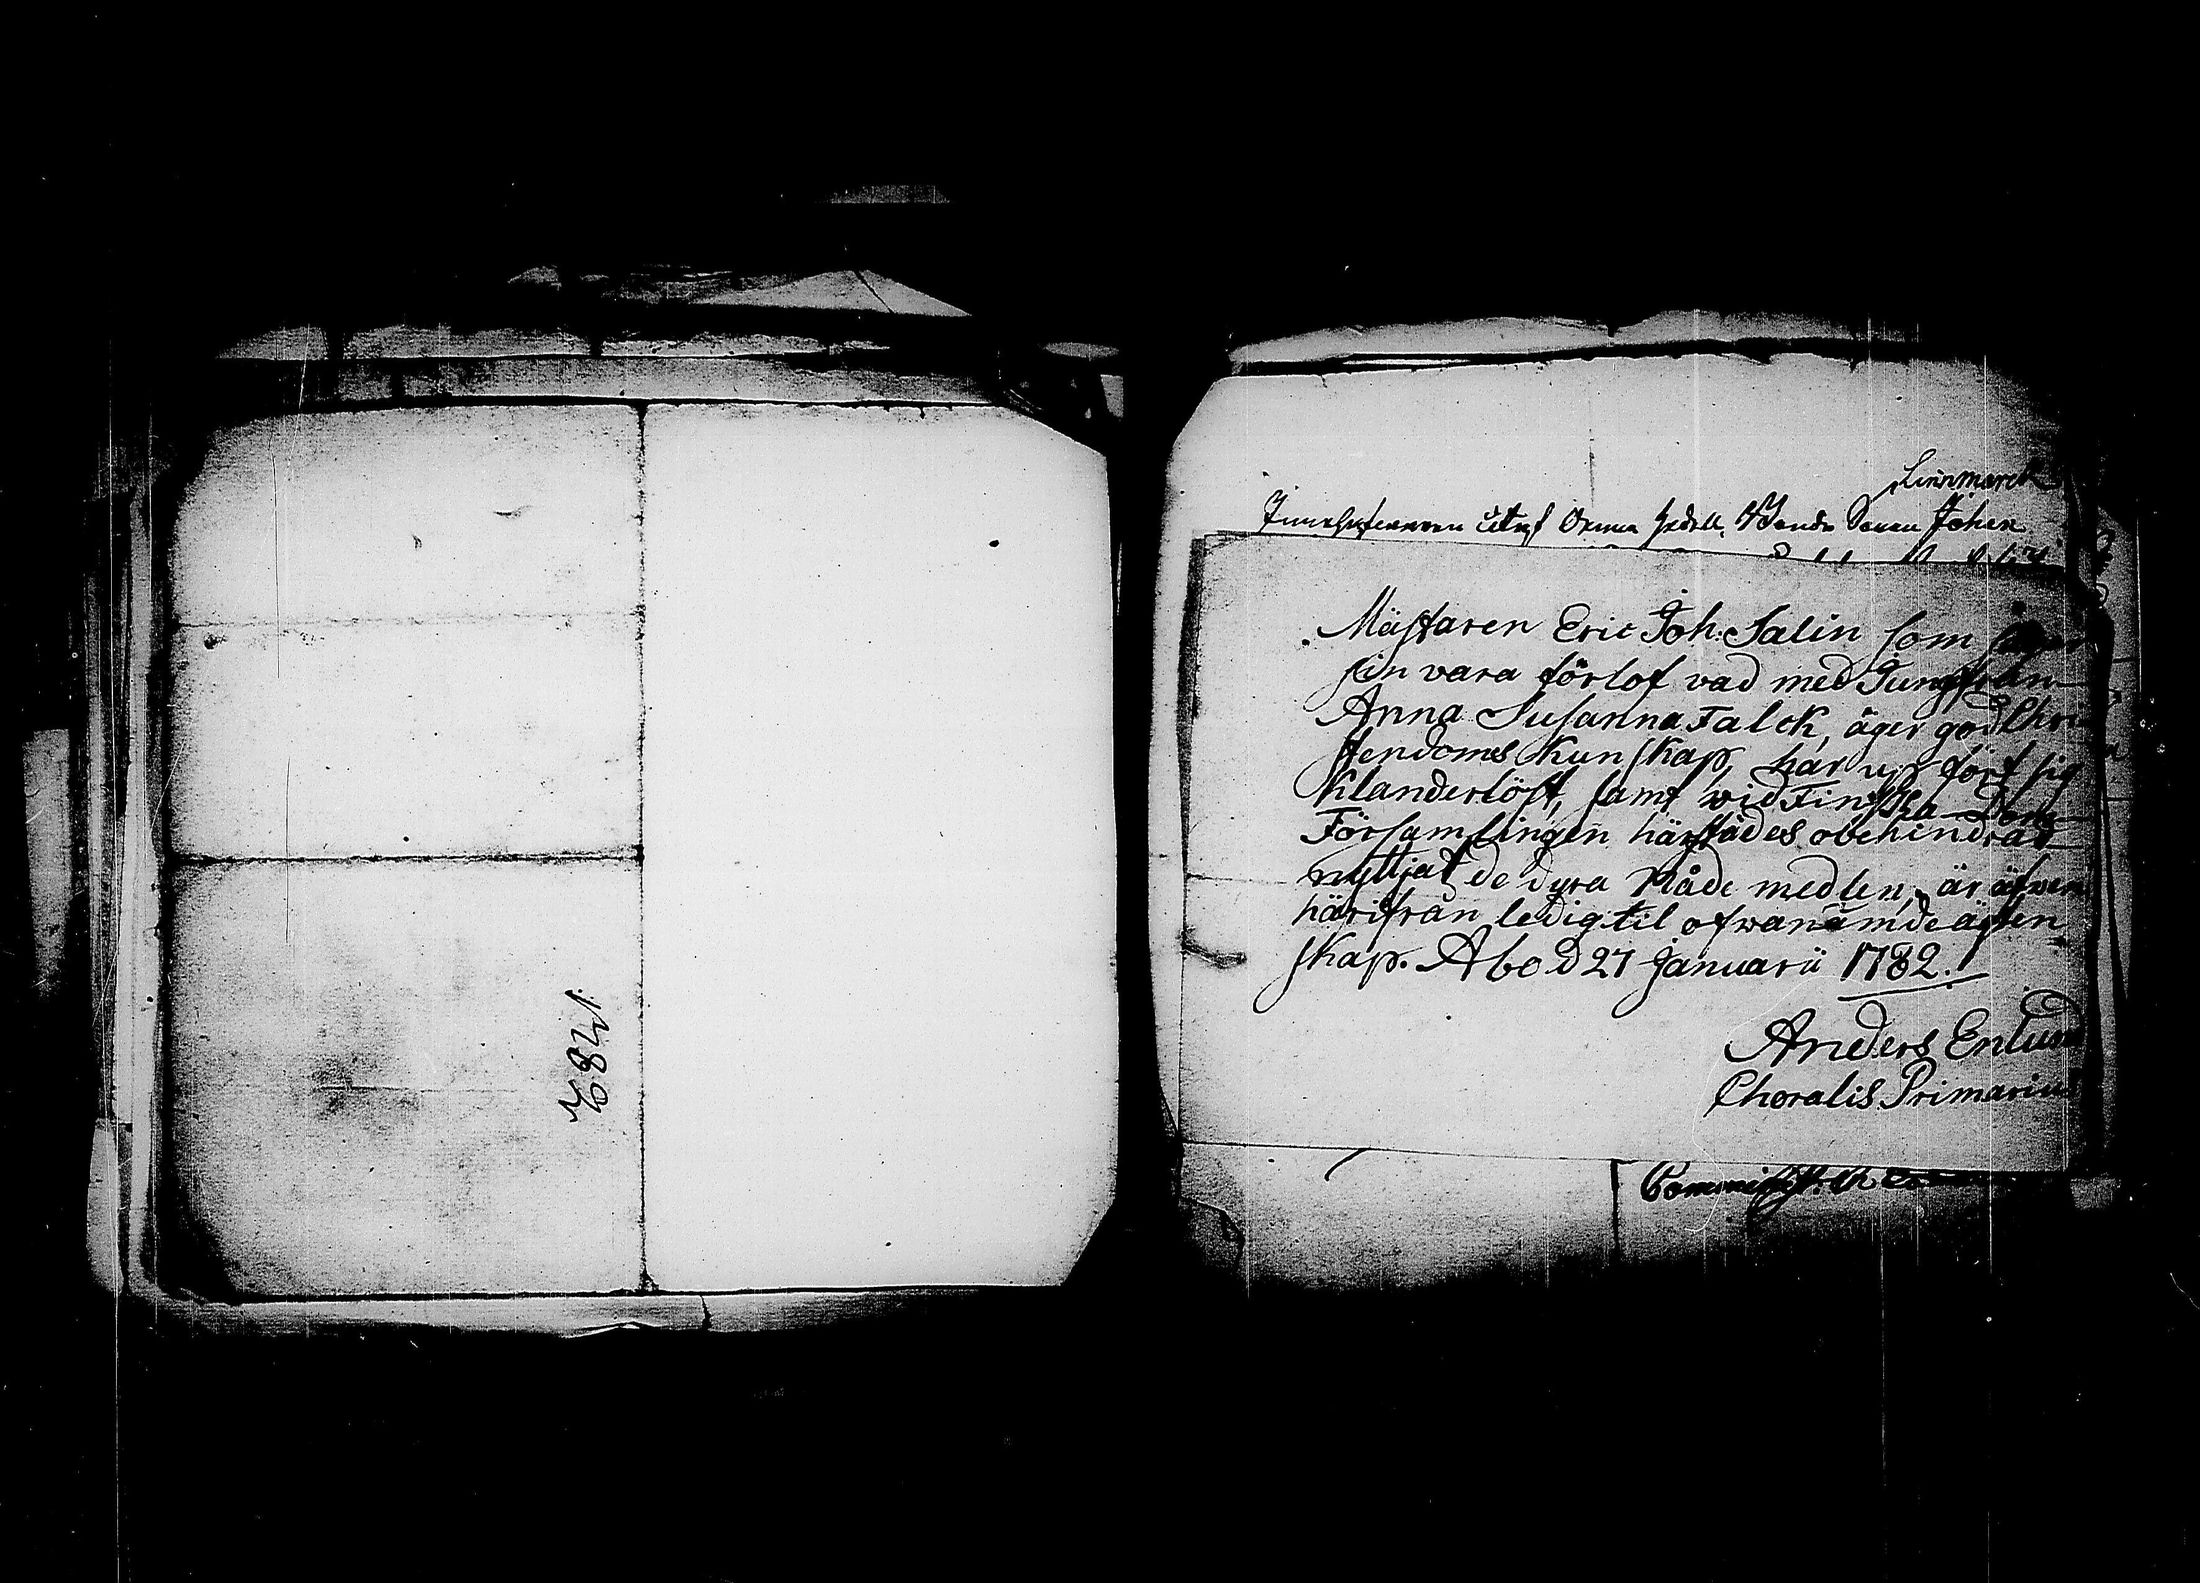 1782.
Linnmarck
Johan
Mästaren Eric Joh: Salin som
sin vara förlofvad med Jungfrun
Anna Susanna Falck, äger god Chri-
stendoms kunskap, har upfört sig
Klanderlöst, samt wid Finska Dom-
Församlingen härstädes obehindrad
nyttjat de dyra Nåde medlen, är äfwen
härifrån ledig til ofwanämde ägten-
skap. Åbo d 27 Januarii 1782.
Anders Enlund
Choralis Primarius